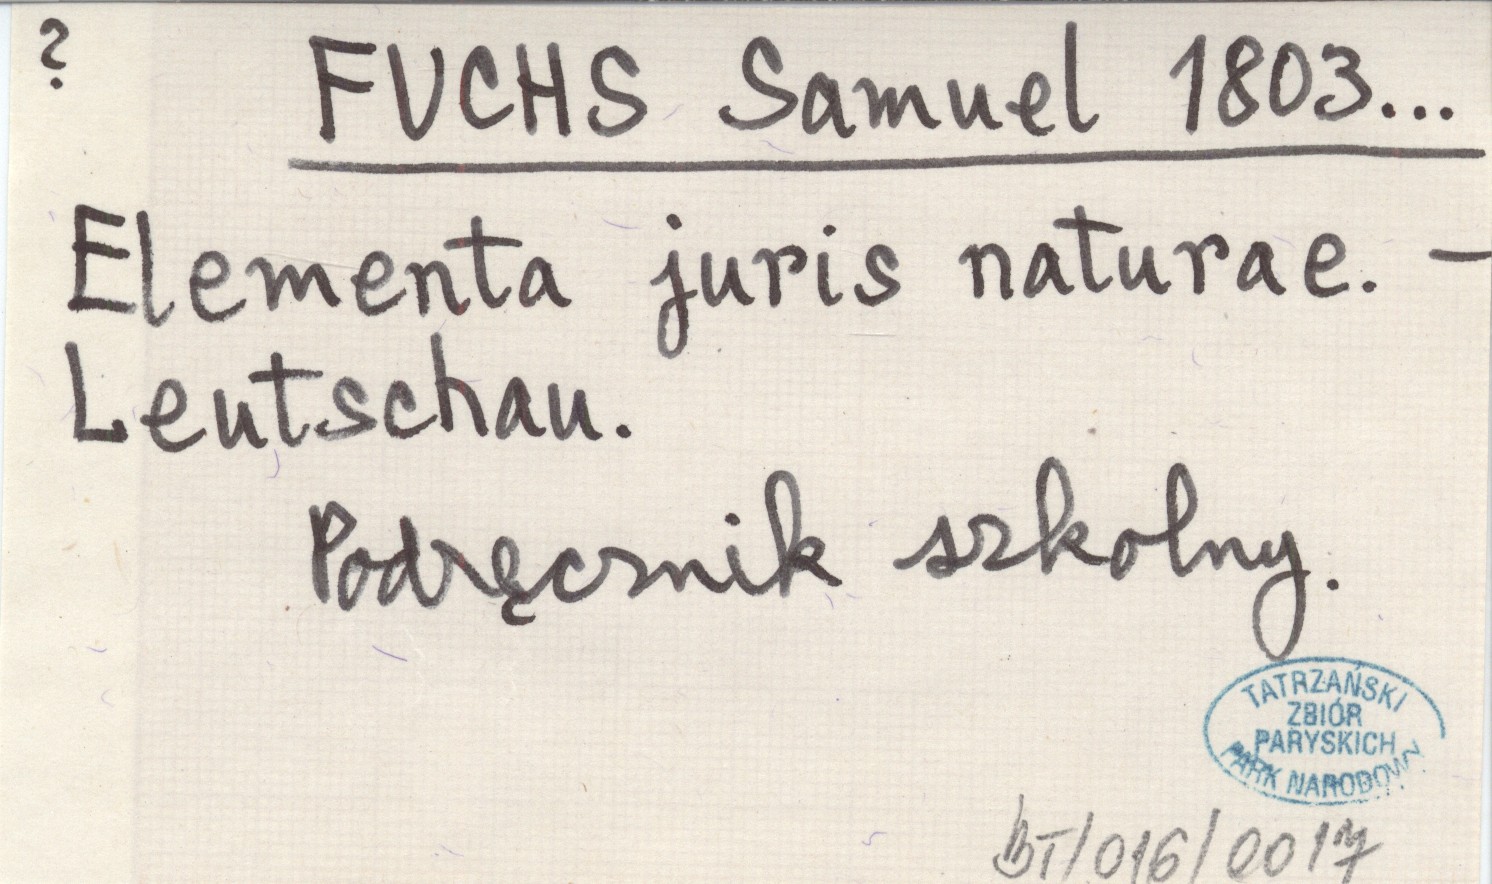 ?
FUCHS Samuel 1803...
Elementa juris naturae. –
Leutschau.
Podręcznik szkolny.
TATRZAŃSKI
ZBIÓR
PARYSKICH
PARK NARODOWY
BT/016/0017